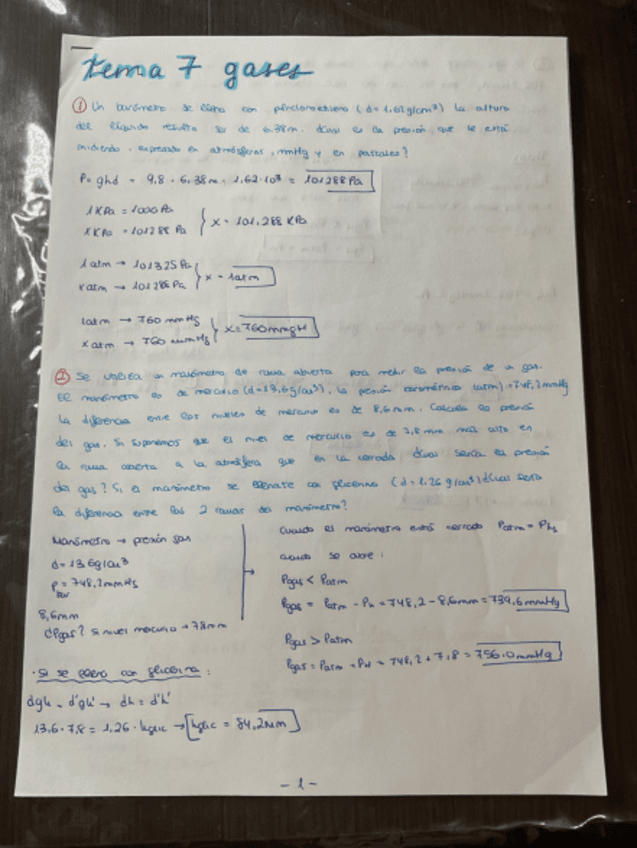 tema 7 gases
① Un barómetro se llena con percloroetileno (d=1.62g/cm³) La altura
del líquido resulta ser de 6.38m. ¿Cuál es la presión que le está
midiendo, expresado en atmósferas, mmHg y en pascales?
P= ghd = 9,8 · 6,38m · 1,62·10³ = 101288Pa
1KPa = 1000 Pa
xKPa = 101288 Pa } x = 101,288 KPa
1atm → 101325 Pa
xatm → 101288 Pa } x = 1atm
1atm → 760 mmHg
x atm → 760 mmHg } x=760mmgH
② Se utiliza un manómetro de rama abierta para medir la presión de un gas.
El manómetro es de mercurio (d=13,6g/cm³), la presión barométrica (atm)=748,2mmHg
La diferencia entre los niveles de mercurio es de 8,6mm. Calcula la presión
del gas. Si suponemos que el nivel de mercurio es de 7,8 mm más alto en
la rama abierta a la atmósfera que en la cerrada ¿Cuál sería la presión
del gas? Si el manómetro se llenase con glicerina (d=1.26 g/cm³) ¿Cuál sería
la diferencia entre las 2 ramas del manómetro?
Manómetro → presión gas
d= 13,6g/cm³
P = 748,2mmHg
bar
8,6mm
¿Pgas? Si nivel mercurio → 7,8mm
Cuando el manómetro está cerrado Patm = PHg
Cuando se abre:
Pgas < Patm
Pgas = Patm - PH = 748,2 - 8,6mm = 739,6mmHg
Pgas > Patm
Pgas = Patm + PH = 748,2 + 7,8 = 756,0mmHg
· Si se llena con glicerina:
dgh = d'gh' → dh = d'h'
13,6·7,8 = 1,26 · hglic → [hglic = 84,2mm]
- 1 -